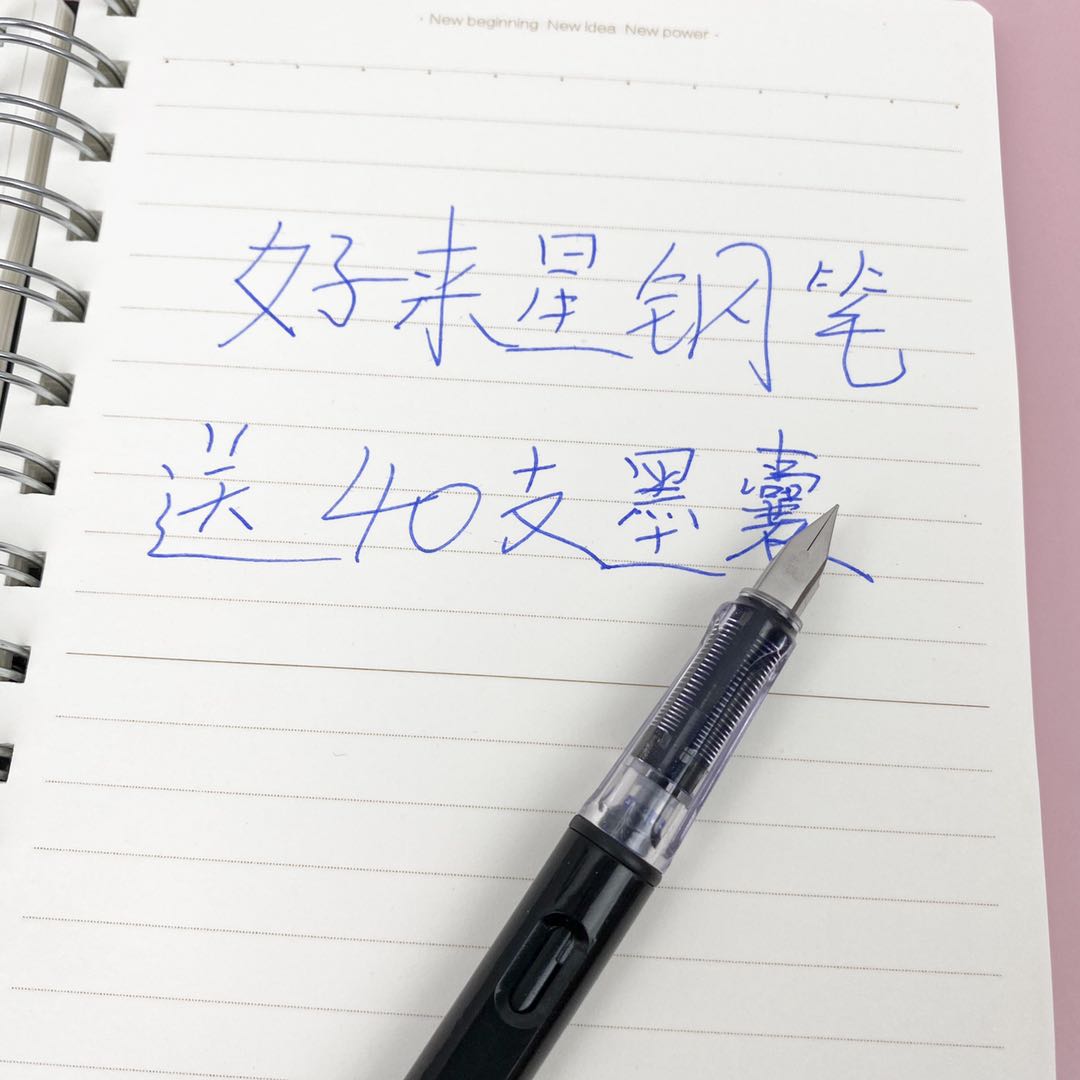 · New beginning New Idea New power ·
好来星钢笔
送40支墨囊